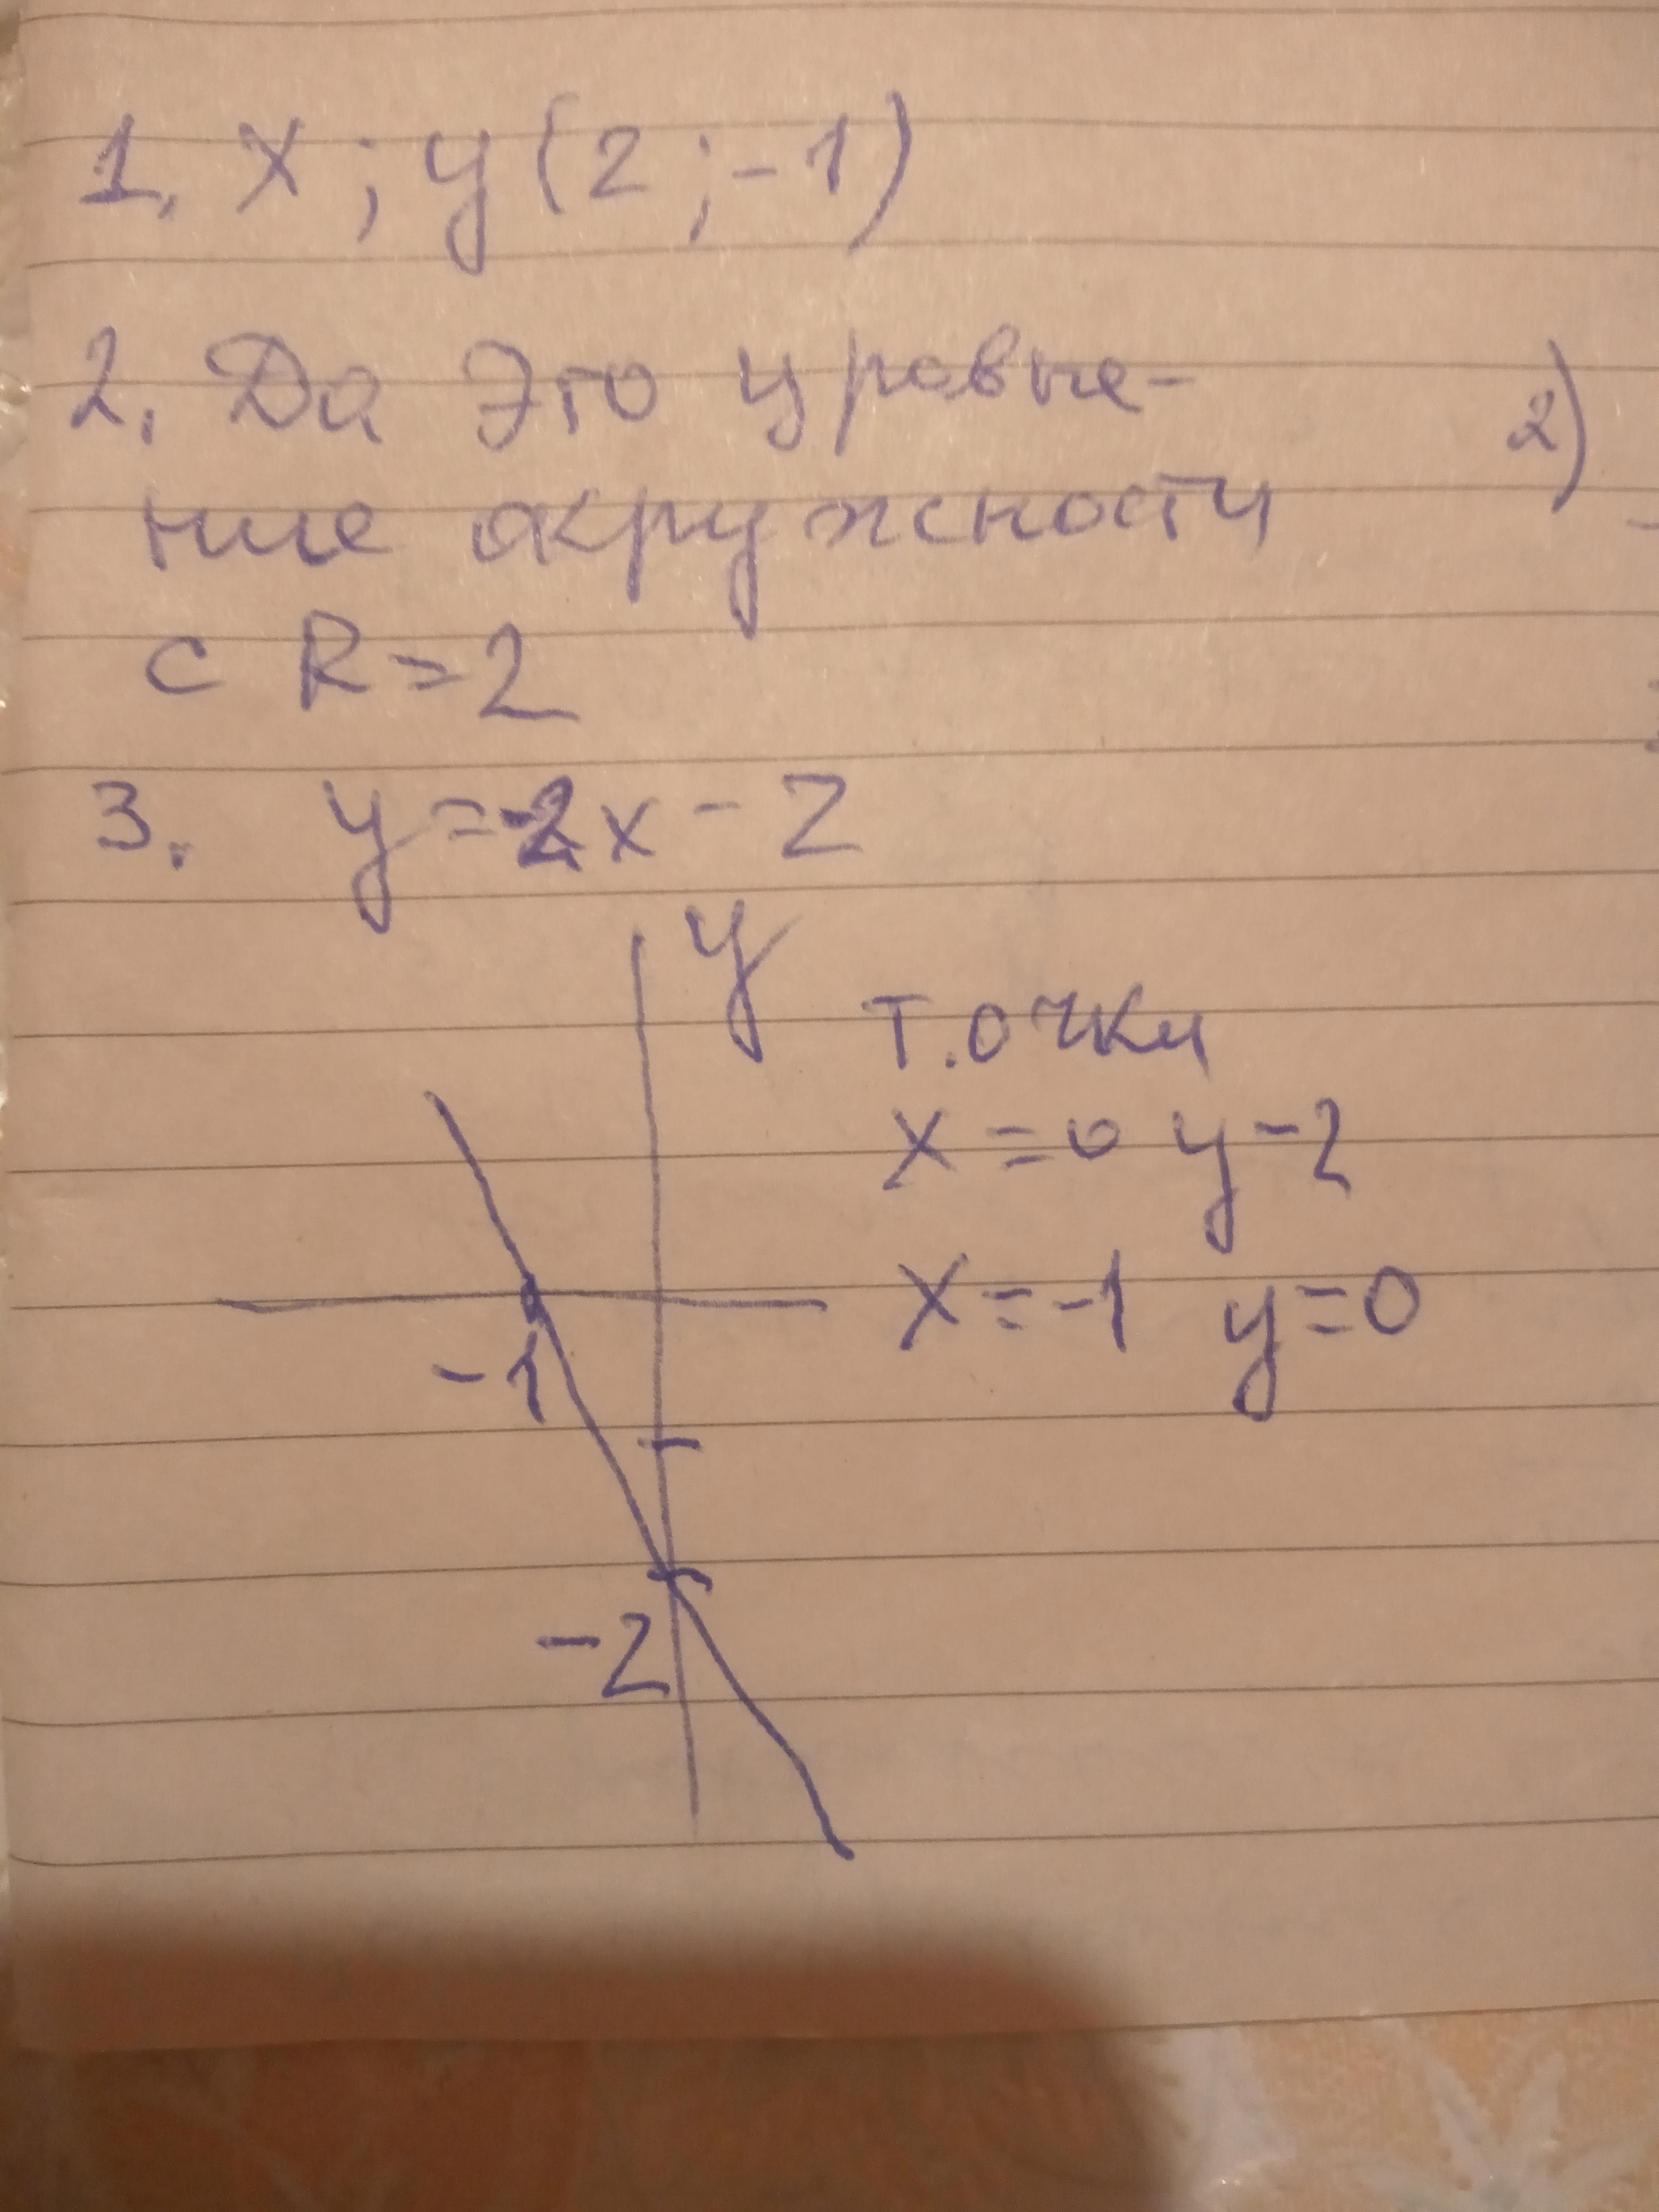 1. x ; y (2 ; -1)
2. Да Это уравне-
ние окружности
2)
с R = 2
3. y = -2x - 2
y
т.очки
x = 0 y - 2
x = -1 y = 0
-1
-2